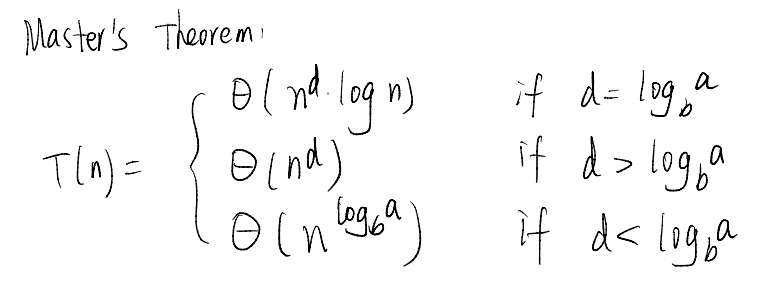 Master's Theorem:
Θ(n^d · log n) if d = log_b a
T(n) = { Θ(n^d) if d > log_b a
Θ(n^{log_b a}) if d < log_b a